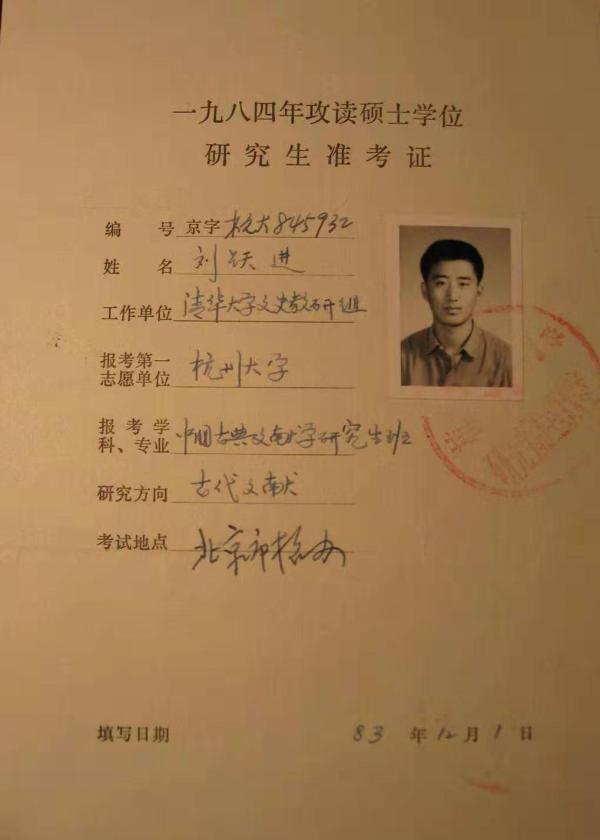 一九八四年攻读硕士学位
研究生准考证
编 号 京字 杭大845932
姓 名 刘跃进
工作单位 清华大学文史教研组
报考第一
志愿单位 杭州大学
报考学
科、专业 中国古典文献学研究生班
研究方向 古代文献
考试地点 北京市招办
填写日期 83 年 12 月 1 日